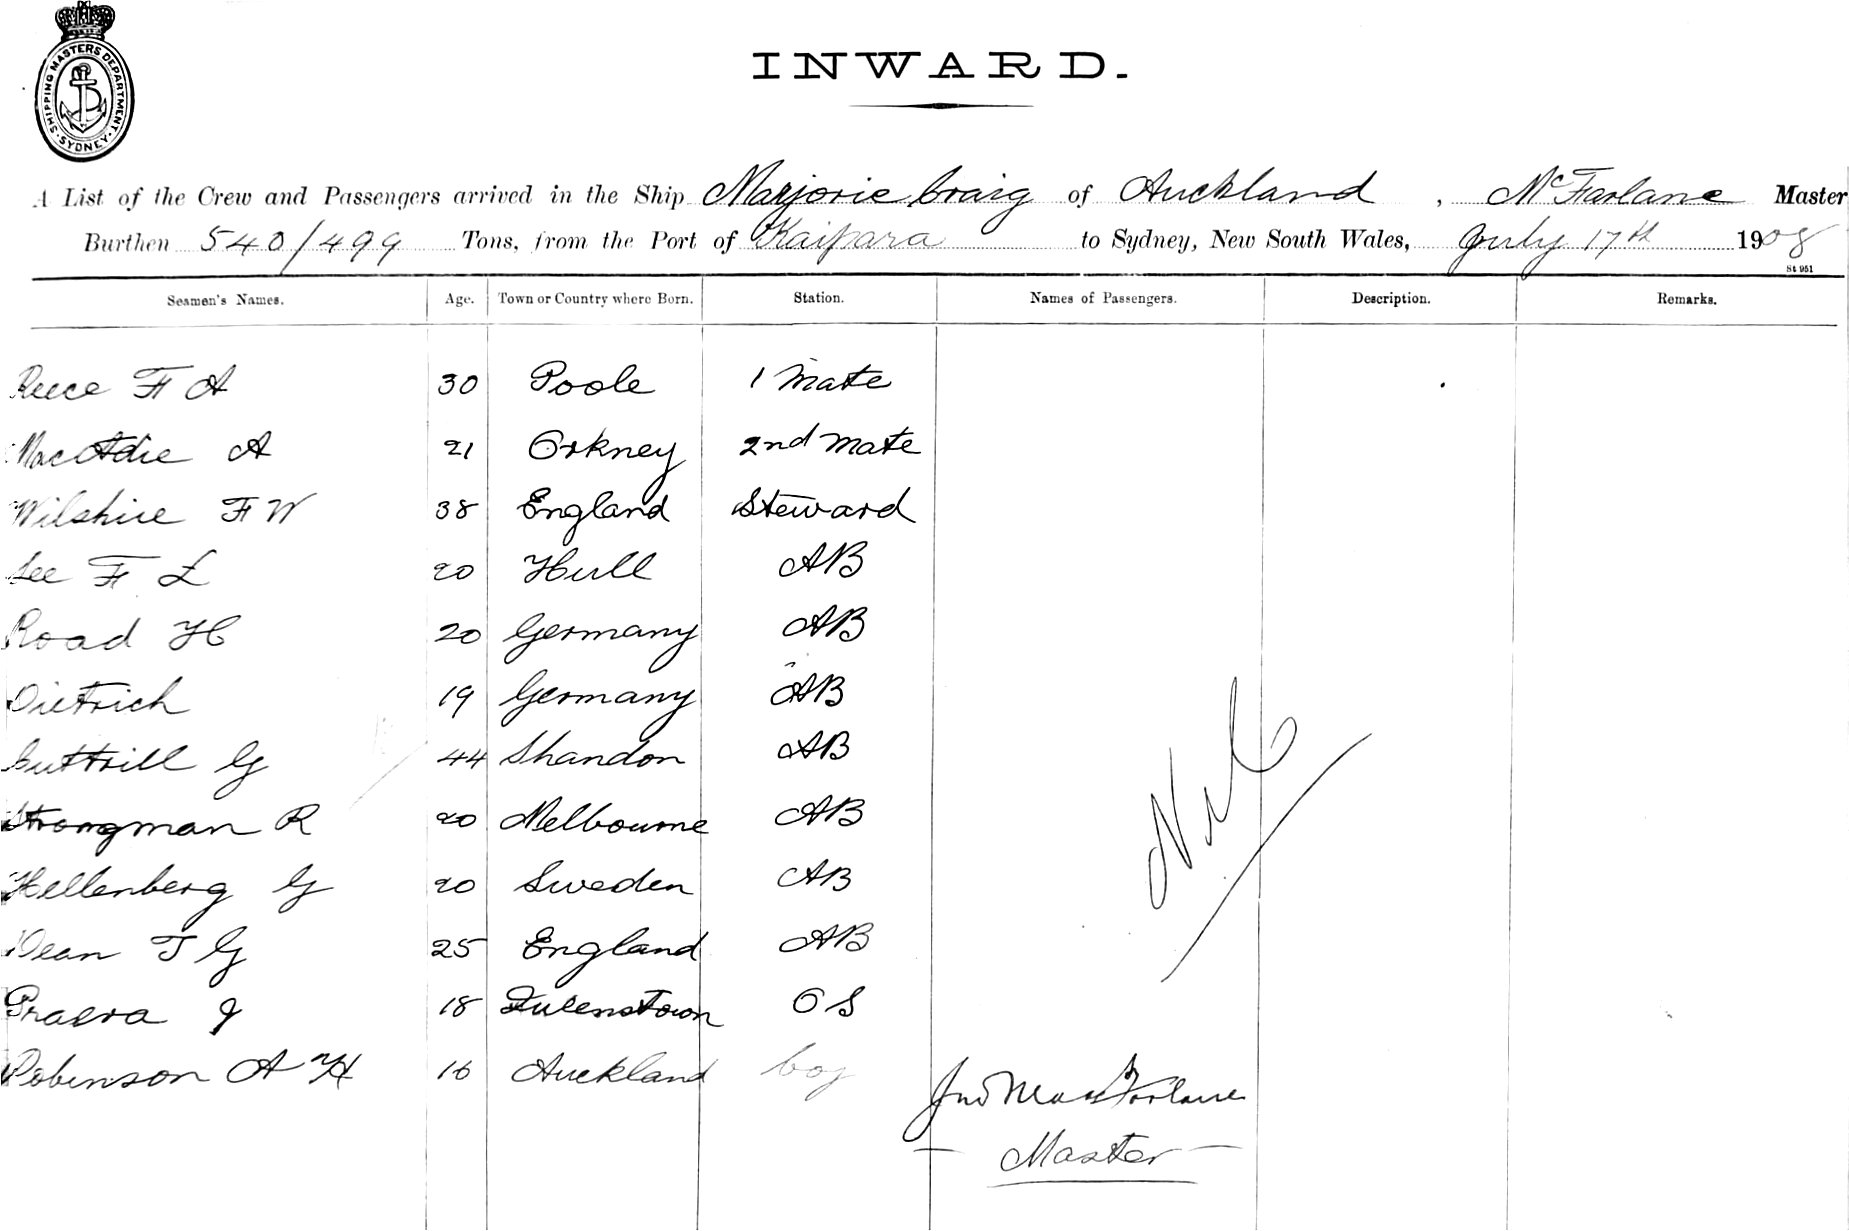 SHIPPING MASTERS DEPARTMENT · SYDNEY ·
INWARD.
A List of the Crew and Passengers arrived in the Ship Marjorie Craig of Auckland, McFarlane Master
Burthen 540/499 Tons, from the Port of Kaipara to Sydney, New South Wales, July 17th 1908
St 951
Seamen's Names. Age. Town or Country where Born. Station. Names of Passengers. Description. Remarks.
Reece F A 30 Poole 1 Mate
MacAdie A 21 Orkney 2nd Mate
Wilshire F W 38 England Steward
Lee F L 20 Hull AB
Road H 20 Germany AB
Dietrich 19 Germany AB
Guttrill G 44 Shandon AB
Strongman R 20 Melbourne AB
Hellenberg G 20 Sweden AB
Dean T G 25 England AB
J 18 Queenstown O S
Robinson A H 16 Auckland boy
Nil
Jno MacFarlane
Master